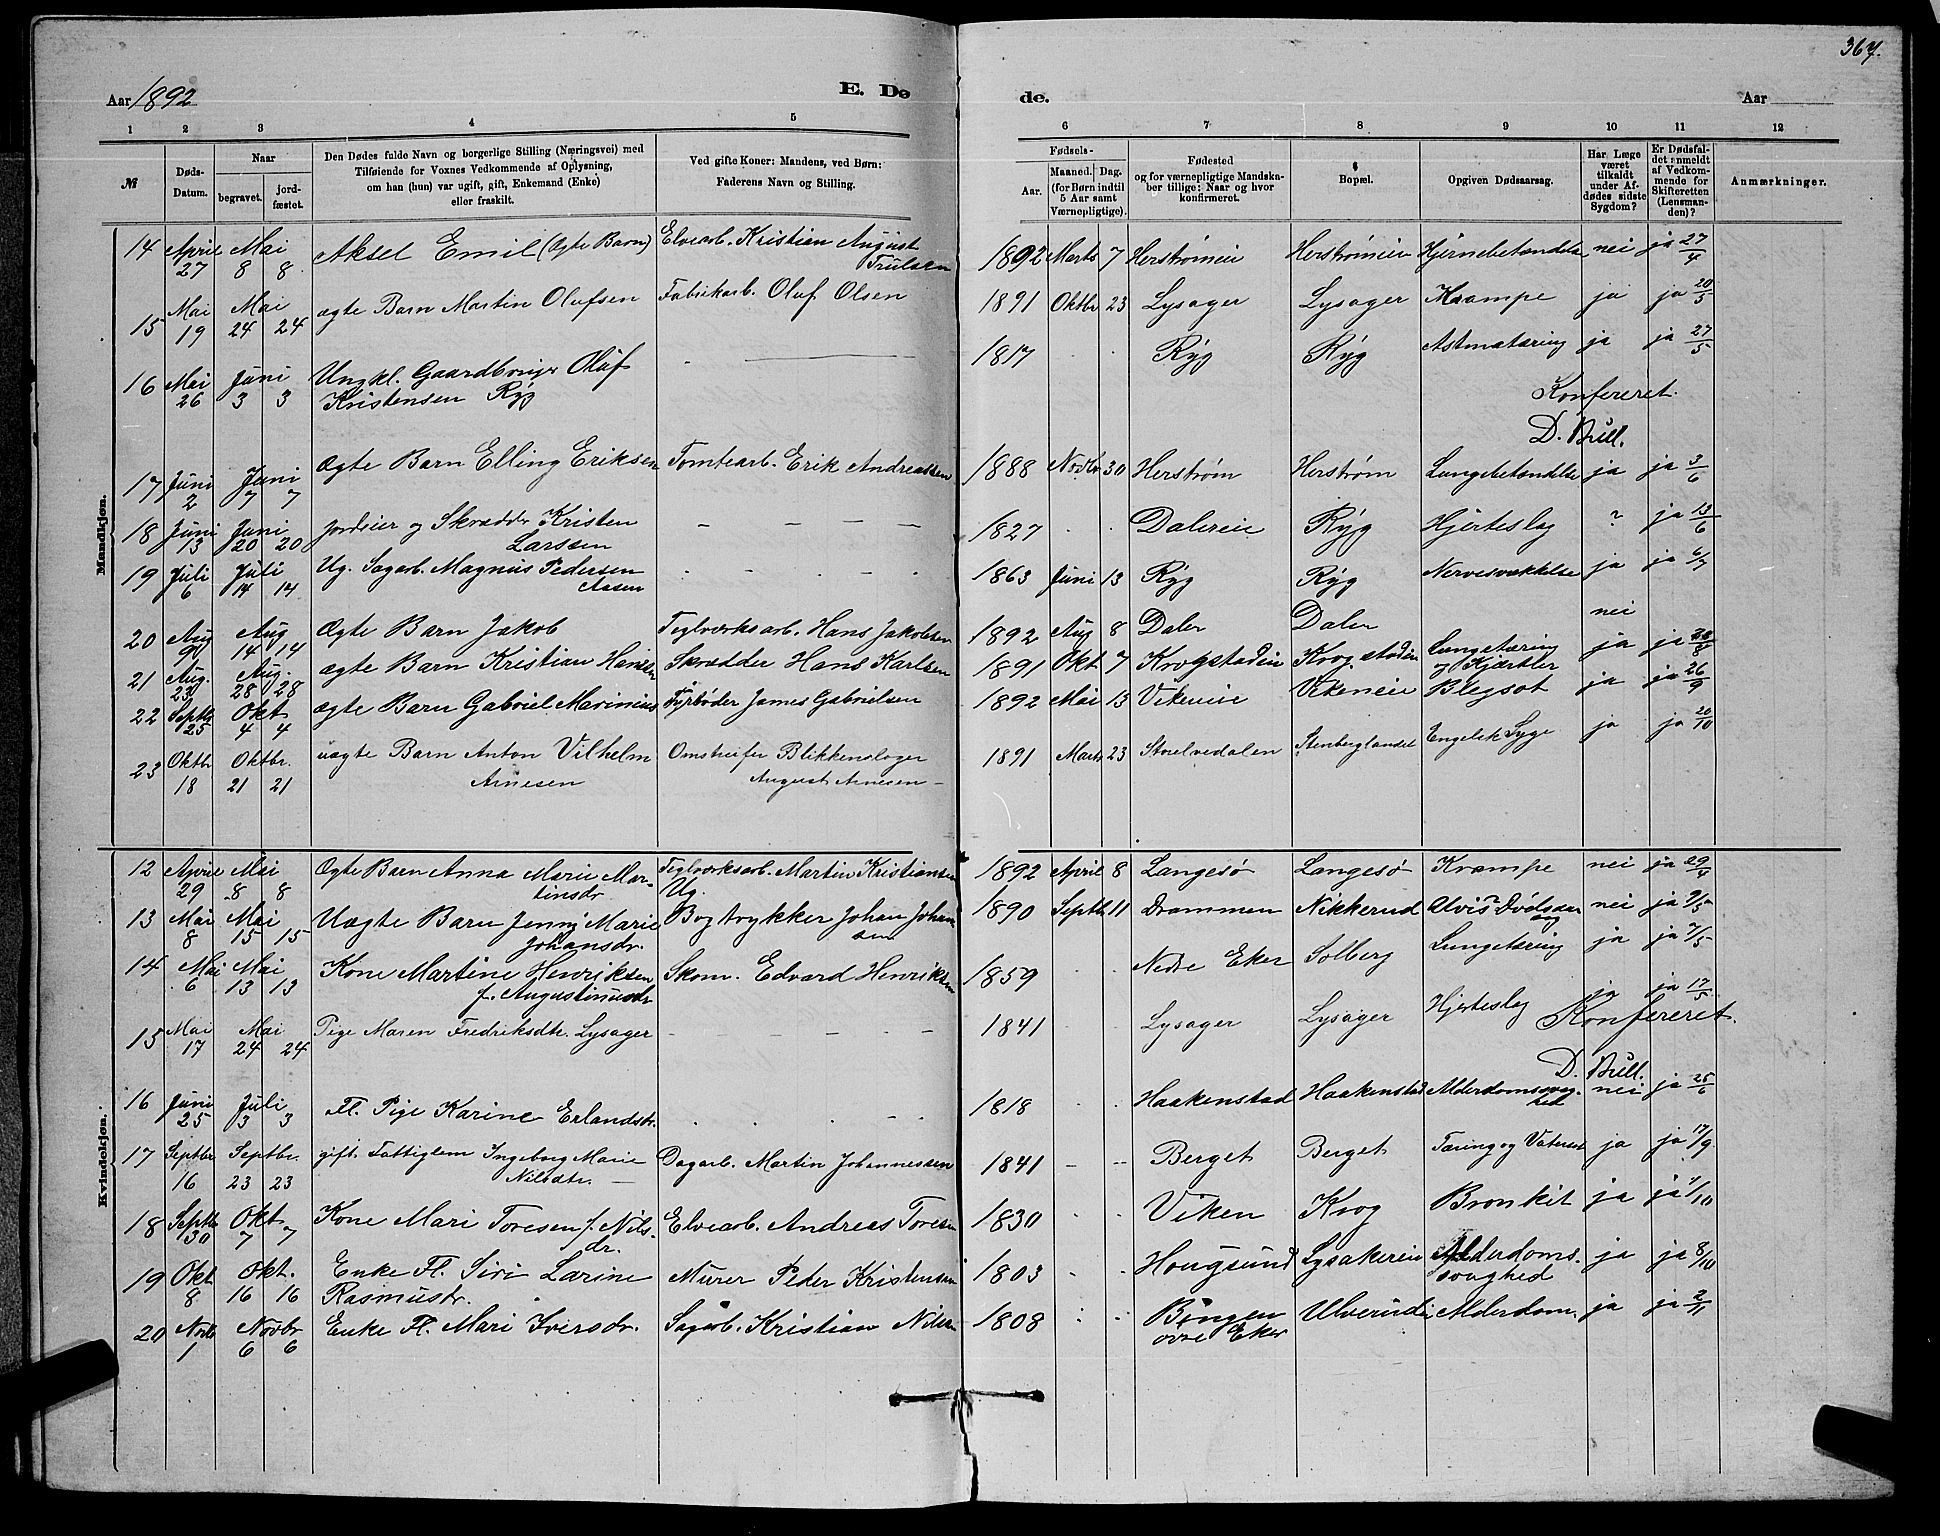 367.
Aar 1892 E. Dø
de. Aar
1 2 3 4 5
6 7 8 9 10 11 12
№ Døds-Datum. Naar begravet. jord-fæstet. Den Dødes fulde Navn og borgerlige Stilling (Næringsvei) med Tilføiende for Voxnes Vedkommende af Oplysning, om han (hun) var ugift, gift, Enkemand (Enke) eller fraskilt. Ved gifte Koner: Mandens, ved Børn: Faderens Navn og Stilling.
Fødsels- Aar. Maaned. Dag. (for Børn indtil 5 Aar samt Værnepligtige). Fødested og for værnepligtige Mandskaber tillige: Naar og hvor konfirmeret. Bopæl. Opgiven Dødsaarsag. Har Læge været tilkaldt under Afdødes sidste Sygdom? Er Dødsfaldet anmeldt af Vedkommende for Skifteretten (Lensmanden)? Anmærkninger.
Mandkjøn.
14 April 27 Mai 8 8 Aksel Emil (Ægte Barn) Elvearb. Kristian August Trulsen 1892 Marts 7 Herstrømeie Herstrømeie Hjernebetændelse nei ja 27/4
15 Mai 19 Mai 24 24 ægte Barn Martin Olufsen Fabrikarb. Oluf Olsen 1891 Oktbr 23 Lysager Lysager Krampe ja ja 20/5
16 Mai 26 Juni 3 3 Ungkl. Gaardbruger Oluf Kristensen Ryg - 1817 Ryg Ryg Astmatæring ja ja 27/5
Konfereret.
D. Bull.
17 Juni 2 Juni 7 7 Ægte Barn Elling Eriksen Tomtearb. Erik Andreassen 1888 Novbr 30 Herstrøm Herstrøm Lungebetændelse ja ja 3/6
18 Juni 13 Juni 20 20 Jordeier og Skrædder Kristen Larssen - - - - 1827 Dalereie Ryg Hjerteslag ? ja 13/6
19 Juli 6 Juli 14 14 Ug. Sagarb. Magnus Pedersen Aasen - - - - 1863 Juni 13 Ryg Ryg Nervesvækkelse ja ja 6/7
20 Aug 9 Aug 14 14 Ægte Barn Jakob Teglværksarb. Hans Jakobsen 1892 Aug 8 Daler Daler nei
21 Aug. 23 Aug. 28 28 ægte Barn Kristian Hansen Skrædder Hans Karlsen 1891 Okt 7 Krogstadeie Krogstadeie Lungetæring og Kjærtler ja ja
22 Septbr 25 Okt 4 4 ægte Barn Gabriel Marinius Fyrbøder James Gabrielsen 1892 Mai 13 Vikeneie Vikeneie Blegsot ja ja 26/9
23 Oktbr 18 Oktbr. 21 21 uægte Barn Anton Vilhelm Arnesen Omstreifer Blikkenslager August Arnesen - 1891 Marts 23 Storelvedalen Stenberglandet Engelsk Syge ja ja 20/10
Kvindekjøn.
12 April 29 Mai 8 8 Ægte Barn Anna Marie Martinsdr Teglværksarb. Martin Kristiansen 1892 April 8 Langesø Langesø Krampe nei ja 29/4
13 Mai 8 Mai 15 15 Uægte Barn Jenny Marie Johansdr. Ug. Bogtrykker Johan Johansen 1890 Septbr 11 Drammen Nikkerud Uvis Dødsaarsag nei ja 9/5
14 Mai 6 Mai 13 13 Kone Martine Henriksen f. Augustinusdr Skom. Edvard Henriksen 1859 Nedre Eker Solberg Lungetæring ja ja 7/5
15 Mai 17 Mai 24 24 Pige Maren Fredriksdtr. Lysager - - - - 1841 Lysager Lysager Hjerteslag ja ja 17/5
Konfereret.
D. Bull.
16 Juni 25 Juli 3 3 Fl. Pige Karine Erlandsdr. 1818 Haakenstad Haakenstad Alderdomssvaghed nei ja 25/6
17 Septbr 16 Septbr. 23 23 gift. Fattiglem Ingeborg Marie Nilsdtr. - Dagarb. Martin Johannessen 1841 - - Berget Berget Tæring og Vatersot ja ja 17/9
18 Septbr 30 Okt 7 7 Kone Mari Toresen f. Nilsdr. Elvearb. Andreas Toresen 1830 Viken Krog Bronkit ja ja 1/10
19 Okt 8 Okt. 16 16 Enke Fl. Siri Larine Rasmusdr. Murer Peder Kristensen 1803 Hougsund Lysakereie Alderdomssvaghed ja ja 8/10
20 Novbr 1 Novbr 6 6 Enke Fl. Mari Iversdr. Sagarb. Kristian Nilsen 1808 Bingen øvre Eker Ulverudei Alderdom. ja ja 2/11